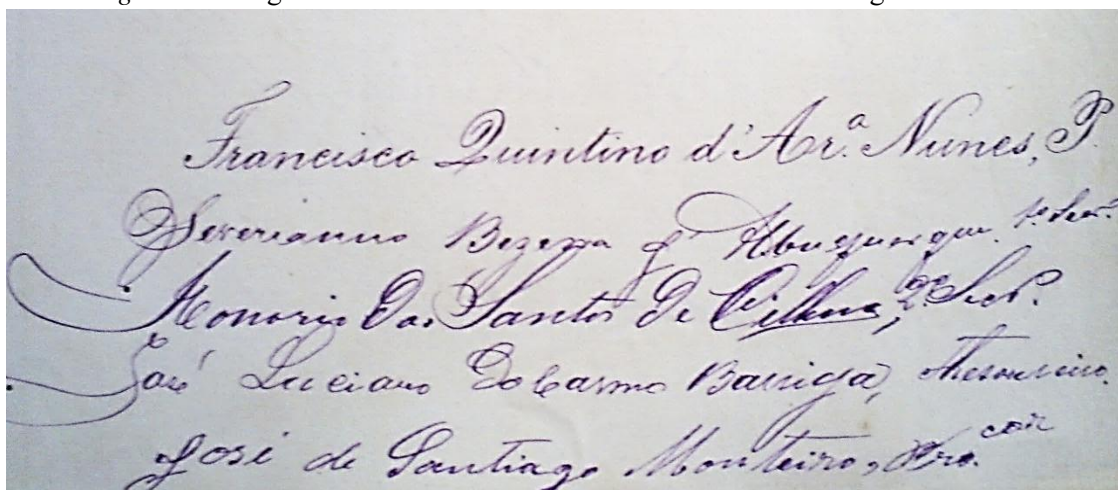 Francisco Quintino d'Ar.ª Nunes, P.
Severianno Bezerra d'Albuquerque. 1º Secrº
Honorio Dos Santos De 2º Secrº.
José Luciano Do Carmo Barriga, Thesoureiro.
José de Santiago Monteiro,